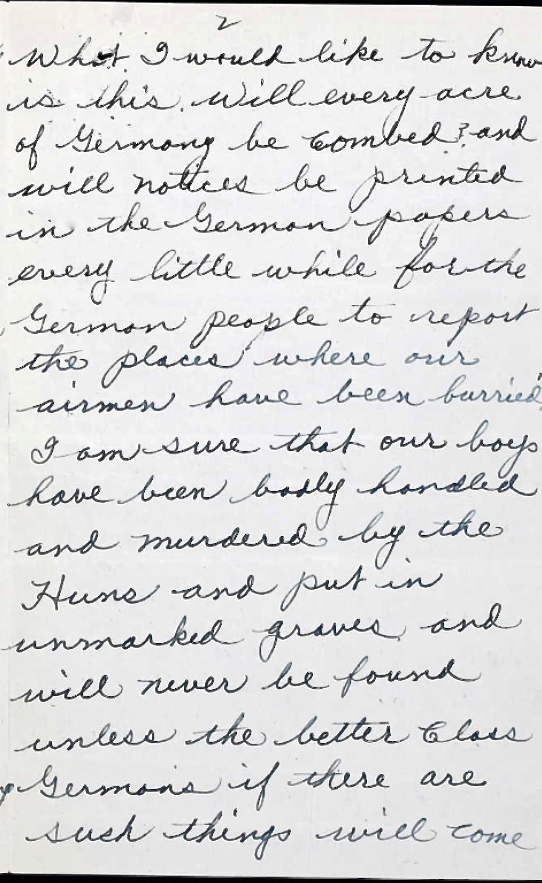 2
What I would like to know
is this. Will every acre
of Germany be combed? and
will notices be printed
in the German papers
every little while for the
German people to report
the places where our
airmen have been burried.
I am sure that our boys
have been badly handled
and murdered by the
Huns and put in
unmarked graves, and
will never be found
unless the better Class
Germans if there are
such things will come